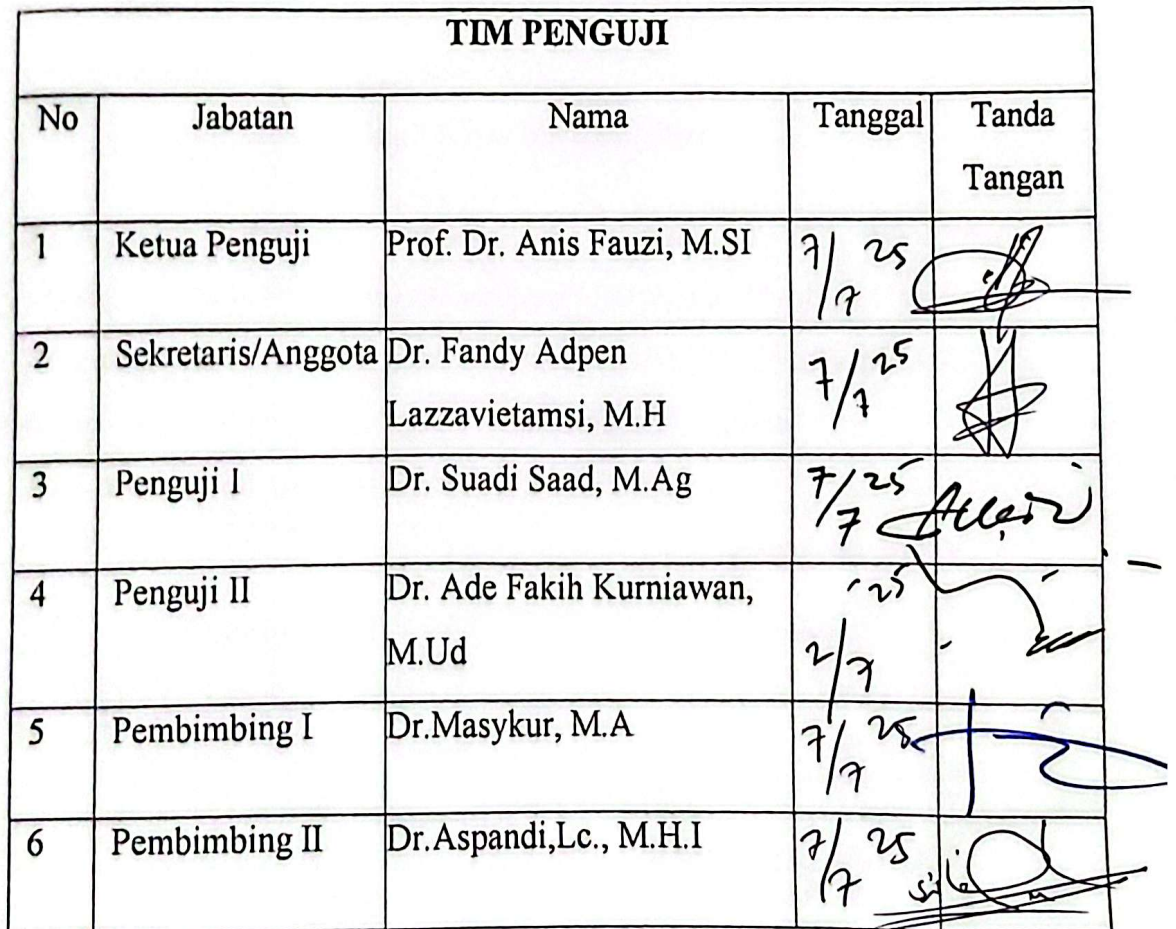 TIM PENGUJI
No Jabatan Nama Tanggal Tanda
Tangan
1 Ketua Penguji Prof. Dr. Anis Fauzi, M.SI 7/7 25
2 Sekretaris/Anggota Dr. Fandy Adpen
Lazzavietamsi, M.H 7/7 25
3 Penguji I Dr. Suadi Saad, M.Ag 7/7 25
4 Penguji II Dr. Ade Fakih Kurniawan, 25
M.Ud 2/7
5 Pembimbing I Dr.Masykur, M.A 7/7 25
6 Pembimbing II Dr.Aspandi,Lc., M.H.I 7/7 25